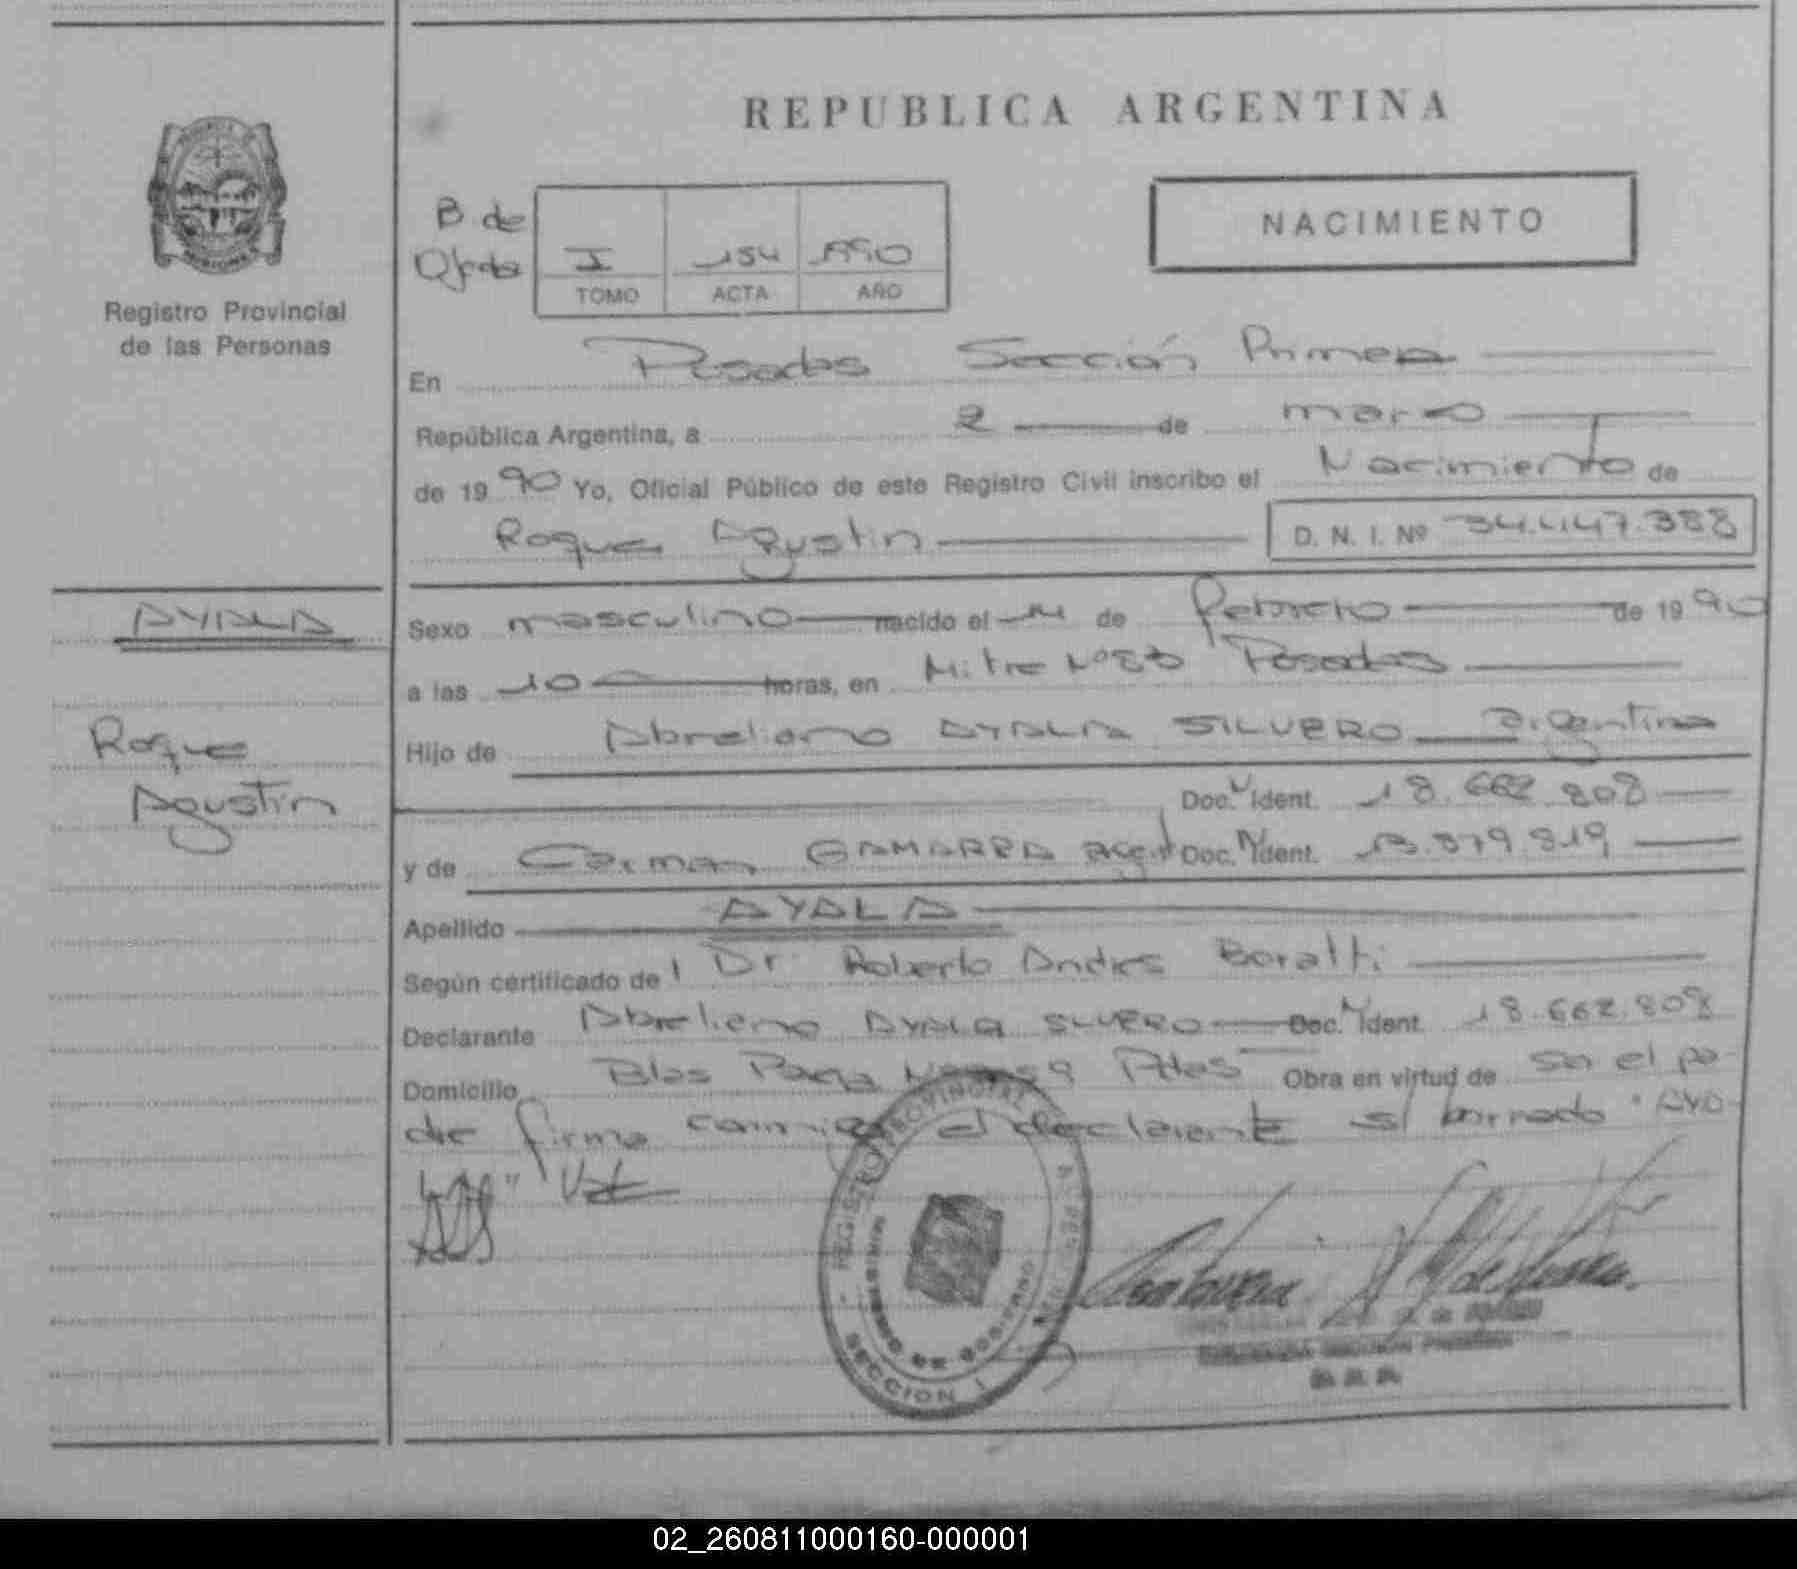 REPUBLICA ARGENTINA
NACIMIENTO
B. de
I 154 1990
TOMO ACTA AÑO
Registro Provincial
de las Personas
En Posadas Sección Primera
República Argentina, a 2 de marzo
de 1990 Yo, Oficial Público de este Registro Civil inscribo el Nacimiento de
Roque Agustin D. N. I. Nº 34.447.388
AYALA
Roque
Agustin
Sexo masculino nacido el 14 de febrero de 1990
a las 10 horas, en Mitre Nº 83 Posadas
Hijo de Abreliano AYALA SILVERO argentina
Doc. Ident. 18.662.808
y de Carmen GAMARRA argent Doc. Ident. 13.879.819
Apellido AYALA
Según certificado de l Dr. Roberto Andres
Declarante Abreliano AYALA SILVERO Doc. Ident. 18.662.808
Domicilio Blas Parera Pdas Obra en virtud de ser el pa-
dre firma conmigo el declarante s/ borrado "AYA-
LA" Vale
REGISTRO PROVINCIAL DE LAS PERSONAS
MINISTERIO DE GOBIERNO
SECCION 1
02_260811000160-000001